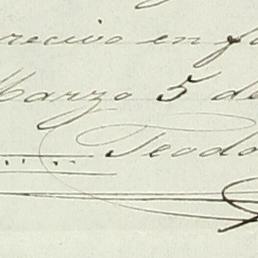 recivo en fa
Marzo 5 de
Teodo